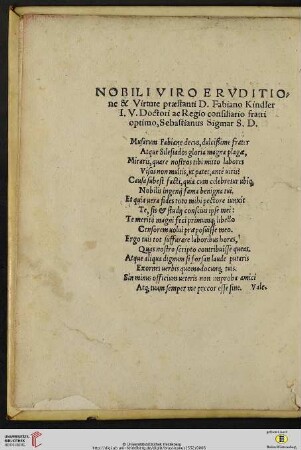 NOBILI VIRO ERVDITIO-
ne & Virtute præstanti D. Fabiano Kindler
I. V. Doctori ac Regio consiliario fratri
optimo, Sebastianus Sigmar S. D.
Musarum Fabiane decus, dulcissime frater
Atque Silesiados gloria magna plagæ,
Miraris, quare nostros tibi mitto labores
Visos non multis, ut patet, ante uiros
Causa subest facti, quia cum celebretur ubiq;
Nobilis ingenij fama benigna tui,
Et quia uera fides toto mihi pectore iunxit
Te, sis & studij conscius ipse mei:
Te merito magni feci primumq; libello
Censorem uolui præposuisse meo.
Ergo tuis tot suffurare laboribus horas,
Quas nostro scripto contribuisse queat.
Atque aliqua dignum si forsan laude putaris
Exornes uerbis quomodocunq; tuis.
Sin minus officium ueteris non improbes amici
Atq; tuum semper me precor esse sine. Vale.